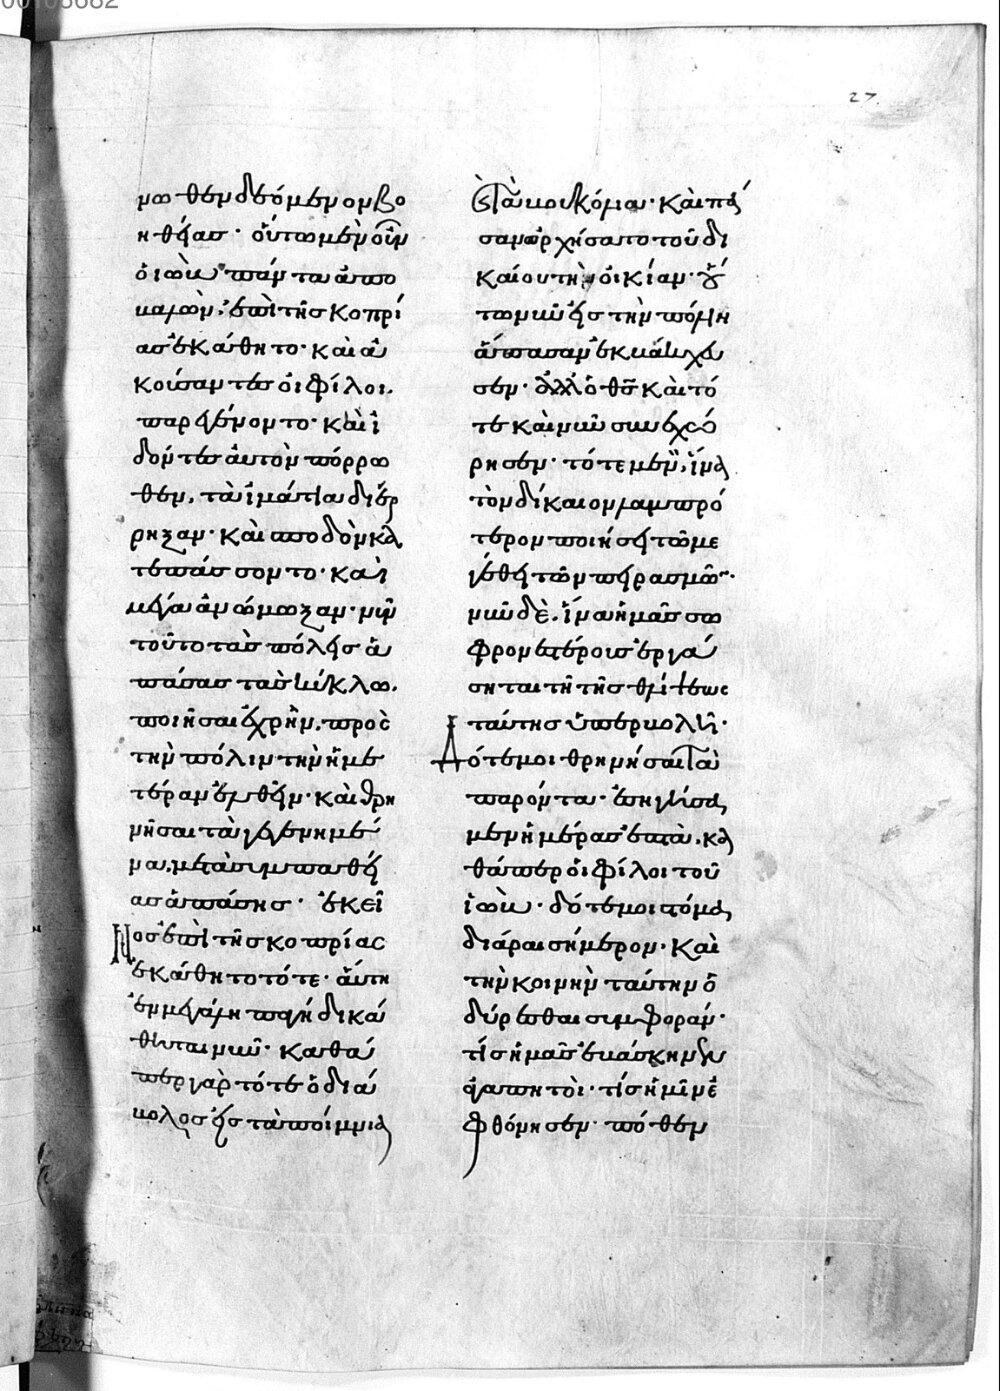 27
νωθεν δεόμενον βο
ηθείας· οὕτω μὲν οὖν
ὁ ἰὼβ πάντα ἀπο
βαλὼν, ἐπὶ τῆς κοπρί
ας ἐκάθητο· καὶ ἀ
κούσαντες οἱ φίλοι,
παρεγένοντο· καὶ ἰ
δόντες αὐτὸν πόρρω
θεν, τὰ ἱμάτια διέρ
ρηξαν· καὶ σποδὸν κα
τεπάσσοντο· καὶ
μέγα ἀνώμωξαν· νῦν
τοῦτο τὰς πόλεις ἁ
πάσας τὰς κύκλω,
ποιῆσαι ἐχρῆν, πρὸς
τὴν πόλιν τὴν ἡμε
τέραν ἐλθεῖν· καὶ θρη
νῆσαι τὰ γεγενημέ
να, μετὰ συμπαθεί
ας ἁπάσης· ἐκεῖ
νος ἐπὶ τῆς κοπρίας
ἐκάθητο τότε· αὕτη
ἐν μεγάλη παγίδι κά
θηται νῦν· καθά
περ γὰρ τότε ὁ διά
βολος εἰς τὰ ποίμνια
ἐς τὰ βουκόλια· καὶ πᾶ
σαν ὠρχήσατο τοῦ δι
καίου τὴν οἰκίαν· οὕ
τω νῦν εἰς τὴν πόλιν
ἅπασαν ἐκβάκχευ
σεν· ἀλλ' ὁ θς καὶ τό
τε καὶ νῦν συνεχώ
ρησεν· τότε μὲν, ἵνα
τὸν δίκαιον λαμπρό
τερον ποιήση τῶ με
γέθει τῶν πειρασμῶν·
νῦν δὲ, ἵνα ἡμᾶς σω
φρονεστέρους ἐργά
σηται τῆ τῆς θλίψεως
ταύτης ὑπερβολῆ·
Δότε μοι θρηνῆσαι τὰ
παρόντα· ἐσίγησα
μεν ἡμέρας ἑπτὰ, κα
θάπερ οἱ φίλοι τοῦ
ἰὼβ· δότε μοι στόμα
διάραι σήμερον· καὶ
τὴν κοινὴν ταύτην ὀ
δύρεσθαι συμφοράν·
τίς ἡμᾶς ἐβάσκηνεν
ἀγαπητοὶ· τίς ἡμῖν ἐ
φθόνησεν· πόθεν